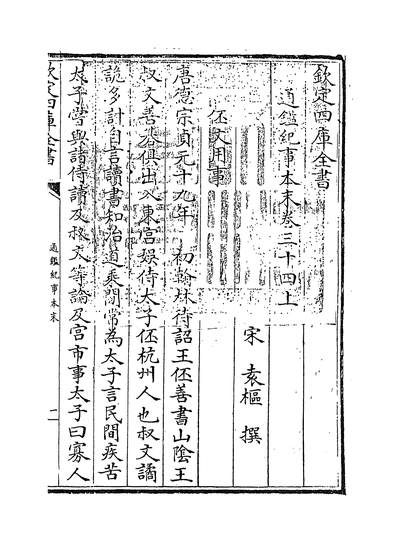 欽定四庫全書
通鑑紀事本末卷三十四上
宋 袁樞 撰
伾文用事
唐德宗貞元十九年 初翰林待詔王伾善書山陰王
叔文善棊俱出入東宮娛侍太子伾杭州人也叔文譎
詭多計自言讀書知治道乘間常為太子言民間疾苦
太子嘗與諸侍讀及叔文等論及宮市事太子曰寡人
欽定四庫全書
通鑑紀事本末